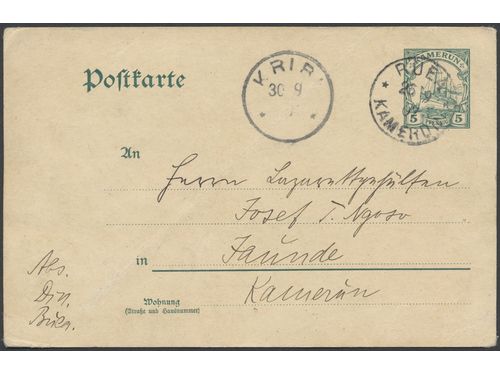 Postkarte
KRIBI
30 9
KAMERUN
5 5
KAMERUN
An
Herrn Lazarettgehülfen
Josef T. Ngoso
in Jaunde
Kamerun
Abs.
Wohnung
(Straße und Hausnummer)